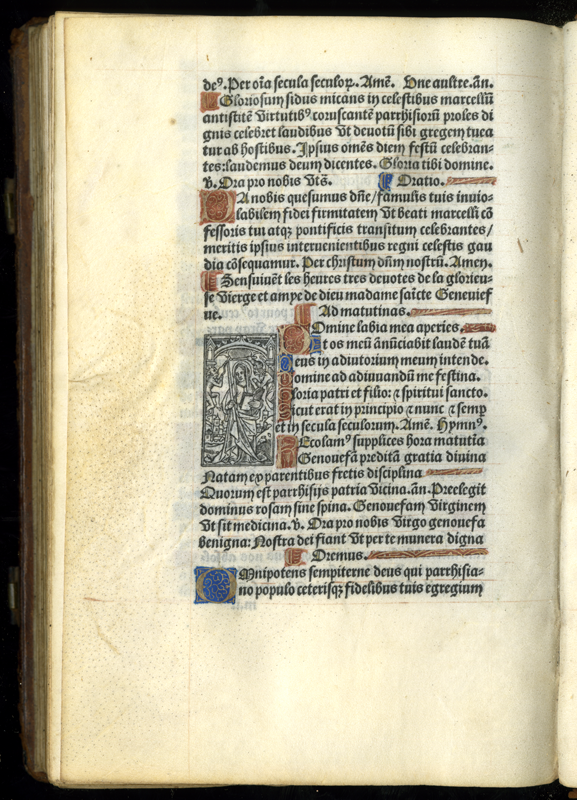 deꝰ. Per oīa secula seculoꝝ. Amē. Vne aultre. añ.
Gloriosum sidus micans in celestibus marcellū
antistitē virtutibꝰ coruscantē parrhisiorū proles di
gnis celebret laudibus Vt deuotū sibi gregem tuea
tur ab hostibus. Ipsius omēs diem festū celebran-
tes: laudemus deum dicentes. Gloria tibi domine.
v. Ora pro nobis vts̄. Oratio.
DA nobis quesumus dn̄e/famulis tuis inuio-
labilem fidei firmitatem Vt beati marcelli cō
fessoris tui atqꝫ pontificis transitum celebrantes/
meritis ipsius interuenientibus regni celestis gau
dia cōsequamur. Per christum dn̄m nostrū. Amen.
Sensuiuēt les heures tres deuotes de la glorieu-
se vierge et ampe de dieu madame saīcte Geneuief
ue. Ad matutinas.
Domine labia mea aperies.
Et os meū anūciabit laudē tuā
Deus in adiutorium meum intende.
Domine ad adiuuandū me festina.
Gloria patri et filio: ⁊ spiritui sancto.
Sicut erat in principio ⁊ nunc ⁊ semꝑ
et in secula seculorum. Amē. Hymnꝰ.
Recolamꝰ supplices hora matutīa
Genouefā preditā gratia diuina
Natam ex parentibus fretis disciplina
Quorum est parrhisijs patria vicina. añ. Preelegit
dominus rosam sine spina. Genouefam virginem
Vt sit medicina. v. Ora pro nobis virgo genouefa
benigna: Nostra dei fiant Vt per te munera digna
Oremus.
OMnipotens sempiterne deus qui parrhisia-
no populo ceterisqꝫ fidelibus tuis egregium